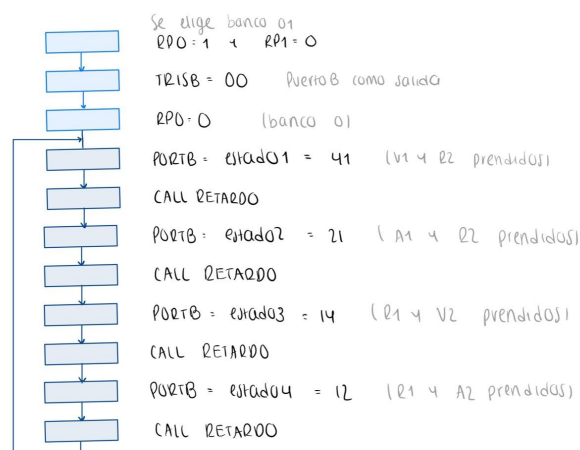 Se elige banco 01
RP0=1 y RP1=0
TRISB = 00 Puerto B como salida
RP0=0 (banco 0)
PORTB = estado1 = 41 (V1 y R2 prendidos)
CALL RETARDO
PORTB = estado2 = 21 (A1 y R2 prendidos)
CALL RETARDO
PORTB = estado3 = 14 (R1 y V2 prendidos)
CALL RETARDO
PORTB = estado4 = 12 (R1 y A2 prendidos)
CALL RETARDO